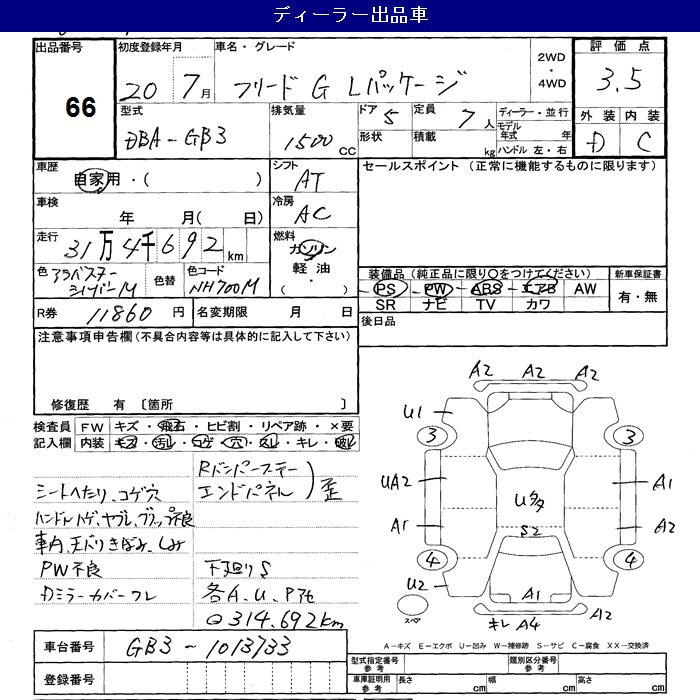 ディーラー出品車
出品番号 初度登録年月 車名・グレード 2WD ・ 4WD 評価点
66 20 7月 フリード G Lパッケージ 3.5
型式 排気量 ドア 5 定員 7人 ディーラー・並行 外装 内装
DBA-GB3 1500 CC 形状 積載 kg モデル年式 年 ハンドル 左・右 D C
車歴 自家用・( ) シフト AT セールスポイント (正常に機能するものに限ります)
車検 年 月( 日) 冷房 AC
走行 31万4千692 km 燃料 ガソリン 軽油 ・( )
色 アラバスターシルバーM 色替 色コード NH700M 装備品 (純正品に限り○をつけてください) 新車保証書
PS PW ABS エアB AW 有・無
SR ナビ TV カワ
R券 11860 円 名変期限 月 日 後日品
注意事項申告欄 (不具合内容等は具体的に記入して下さい)
修復歴 有 〔箇所 〕
検査員記入欄 FW キズ・飛石・ヒビ割・リペア跡・×要
内装 キズ・汚レ・コゲ・穴・スレ・キレ・破レ
Rバンパーステー
エンドパネル ) 歪
シートへたり、コゲ穴
ハンドルハゲ、ヤブレ、
車内、天バリきばみ、しみ
PW不良 下廻りS
Dミラーカバーワレ 各A、U、P他
314.692km
A2 A2 A2
U1
3 3
UA2 U多 A1
A1 S2 A2
4 4
U2 A1
スペア キレ A4 A2
A-キズ E-エクボ U-凹み W-補修跡 S-サビ C-腐食 XX-交換済
車台番号 GB3-1013733
登録番号
型式指定番号 参考 類別区分番号 参考
車庫証明用 参考 長さ cm 幅 cm 高さ cm